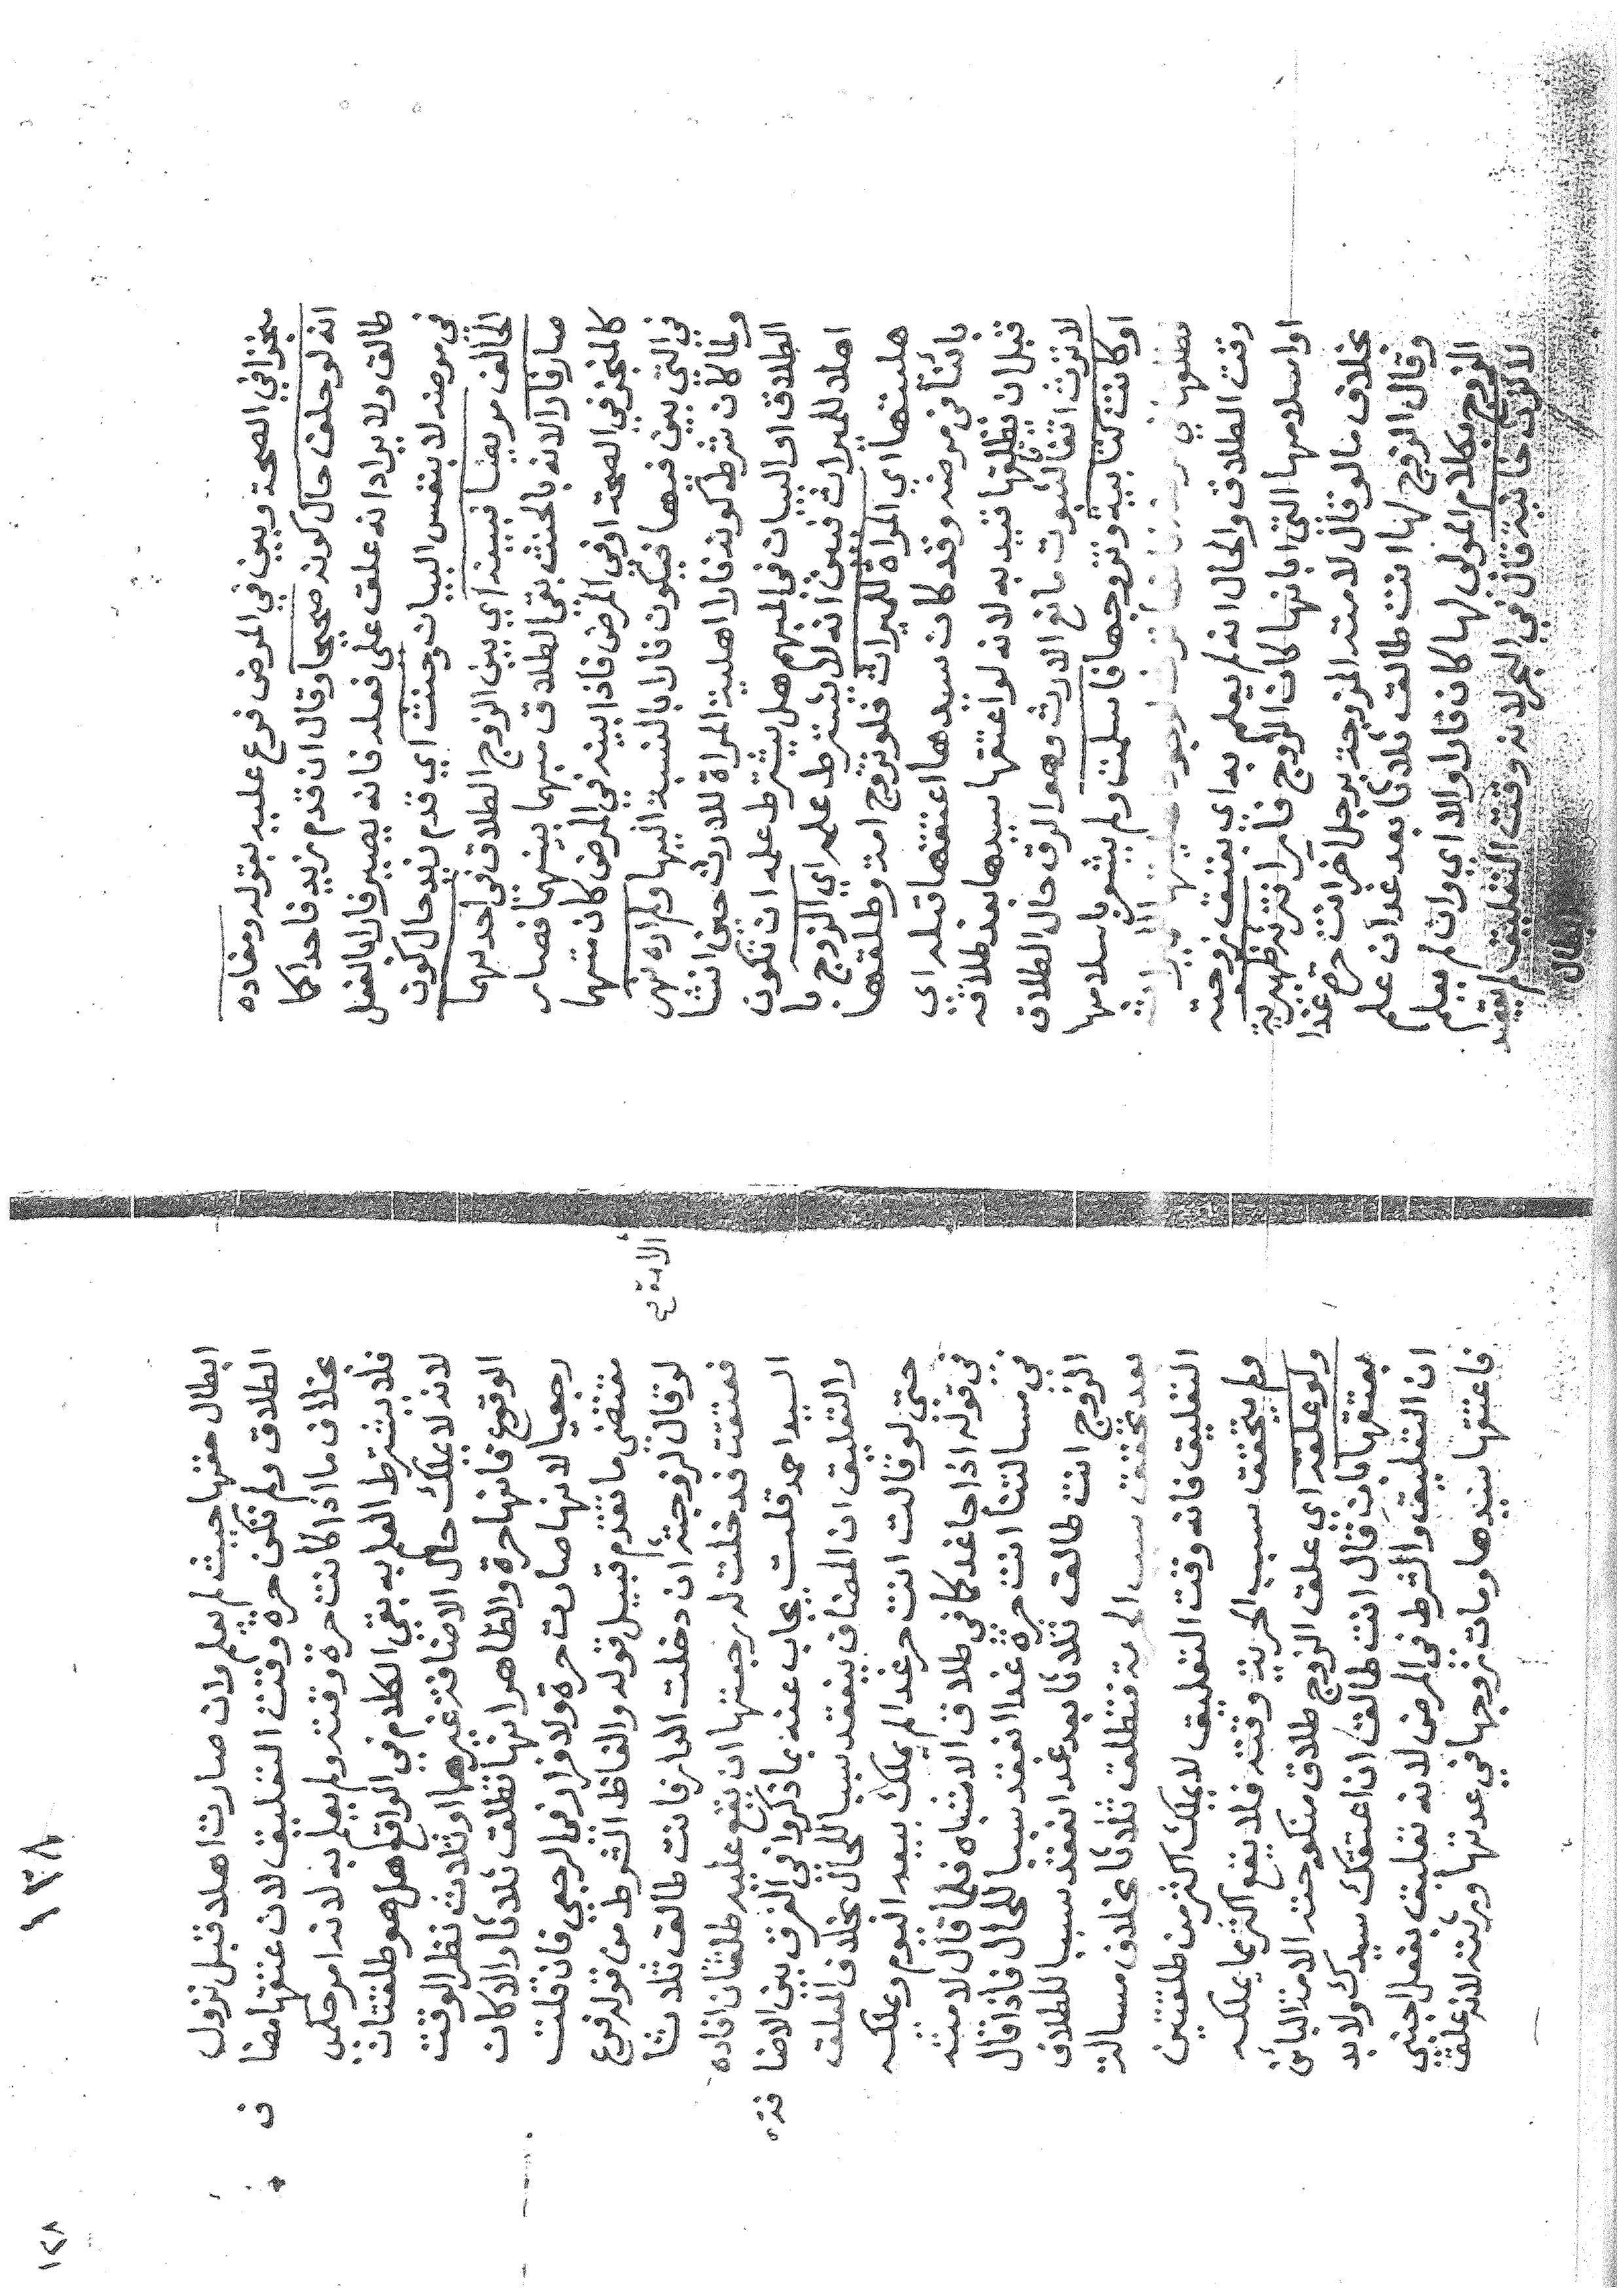 بنجز في الصحة وبين في المرض فرع عليه بقوله ومفاده
انه لو حلف حال كونه صحيحا وقال ان قدم زيد فاحداكما
طالق ولا يراد انه علق على فعله فانه يصير فارا بالفعل
في مرضه لا بنفس البيان وحنث اي قدم زيد حال كون
الحالف مريضا فبينه اي بين الزوج الطلاق في احديهما
صار فارا لانه بالحنث بقي الطلاق مبهما بينهما فصار
كالمنجز في الصحة او في المرض فاذا بينه في المرض كان متهما
في التي بين فيها فيكون فارا بالنسبة اليها ولم اره نهر
ولما كان شرط كونه فارا اهلية المراة للارث حين انشا
الطلاق او البيان في المبهم هل يشترط علمه ان تكون
اهلا للميراث فبين انه لا يشترط علمه اي الزوج با
هليتها اي المراة للميراث فلو تزوج امة وطلقها
بائنا في مرضه وقد كان سيدها اعتقها قبله اي
قبل ان يطلقها قيد به لانه لو اعتقها سيدها بعد طلاقه
لا ترث اتفاقا لثبوت مانع الارث وهو الرق حال الطلاق
او كانت كتابية وتزوجها فاسلمت ولم يشعر باسلامها
وقت الطلاق والحال انه لم يعلم به اي بعتق زوجته
او اسلامها التي ابانها كان الزوج فارا فترثه ظهيرية
بخلاف ما لو قال لامته المزوجة برجل اخر انت حرة غدا
وقال الزوج لها انت طالق ثلاثا بعد غد ان علم
الزوج بكلام المولى لها كان فارا والا اي وان لم يعلم
لا ترث خانية قال في البحر لانه وقت التعليق لم يقصد
ابطال
١٣٨
١٢٨
ابطال حقها حيث لم يعلم وان صارت اهلا قبل نزول
الطلاق ولم تكن حرة وقت التعليق لان عتقها مضا
ف
بخلاف ما اذا كانت حرة وقته ولم يعلم به لانه امر حكمي
فلا يشترط العلم به بقي الكلام في الواقع هل هو طلقتان
لانه لا يملك حال الاضافة غيرها او ثلاث نظر الوقت
الوقوع فانها حرة والظاهر انها تطلق ثلاثا والا كان
رجعيا لانها صارت حرة ولا فرار في الرجعي فان قلت
مقتضى ما تقدم قبيل قوله والفاظ الشرط من قوله فرع
لو قال لزوجته الامة ان دخلت الدار فانت طالق ثلاثا
فعتقت فدخلت له رجعتها ان تقع عليه طلقتان افاده
السيد احمد قلت يجاب عنه بما ذكروا في الفرق بين الاضا
فة
والتعليق ان المضاف ينعقد سببا للحال بخلاف المعلق
حتى لو قالت انت حر غدا لم يملك بيعه اليوم ويملكه
في قوله اذا جا غد كما في طلاق الاشباه فلما قال لامته
في مسالتنا انت حرة غدا انعقد سببا للحال فاذا قال
الزوج انت طالق ثلاثا بعد غد انعقد سببا للطلاق
بعد تحقق سبب الحرية فتطلق ثلاثا بخلاف مسالة
التعليق فانه وقت التعليق لا يملك اكثر من طلقتين
ولم يتحقق سبب الحرية وقته فلا يقع اكثر مما يملكه
ولو علقه اي علق الزوج طلاق منكوحته الامة البائن
بعتقها بان قال انت طالق ان اعتقك سيدك ولا بد
ان التعليق والشرط في المرض لانه تعليق بفعل اجنبي
فاعتقها سيدها ومات زوجها في عدتها ورثته لانه علق